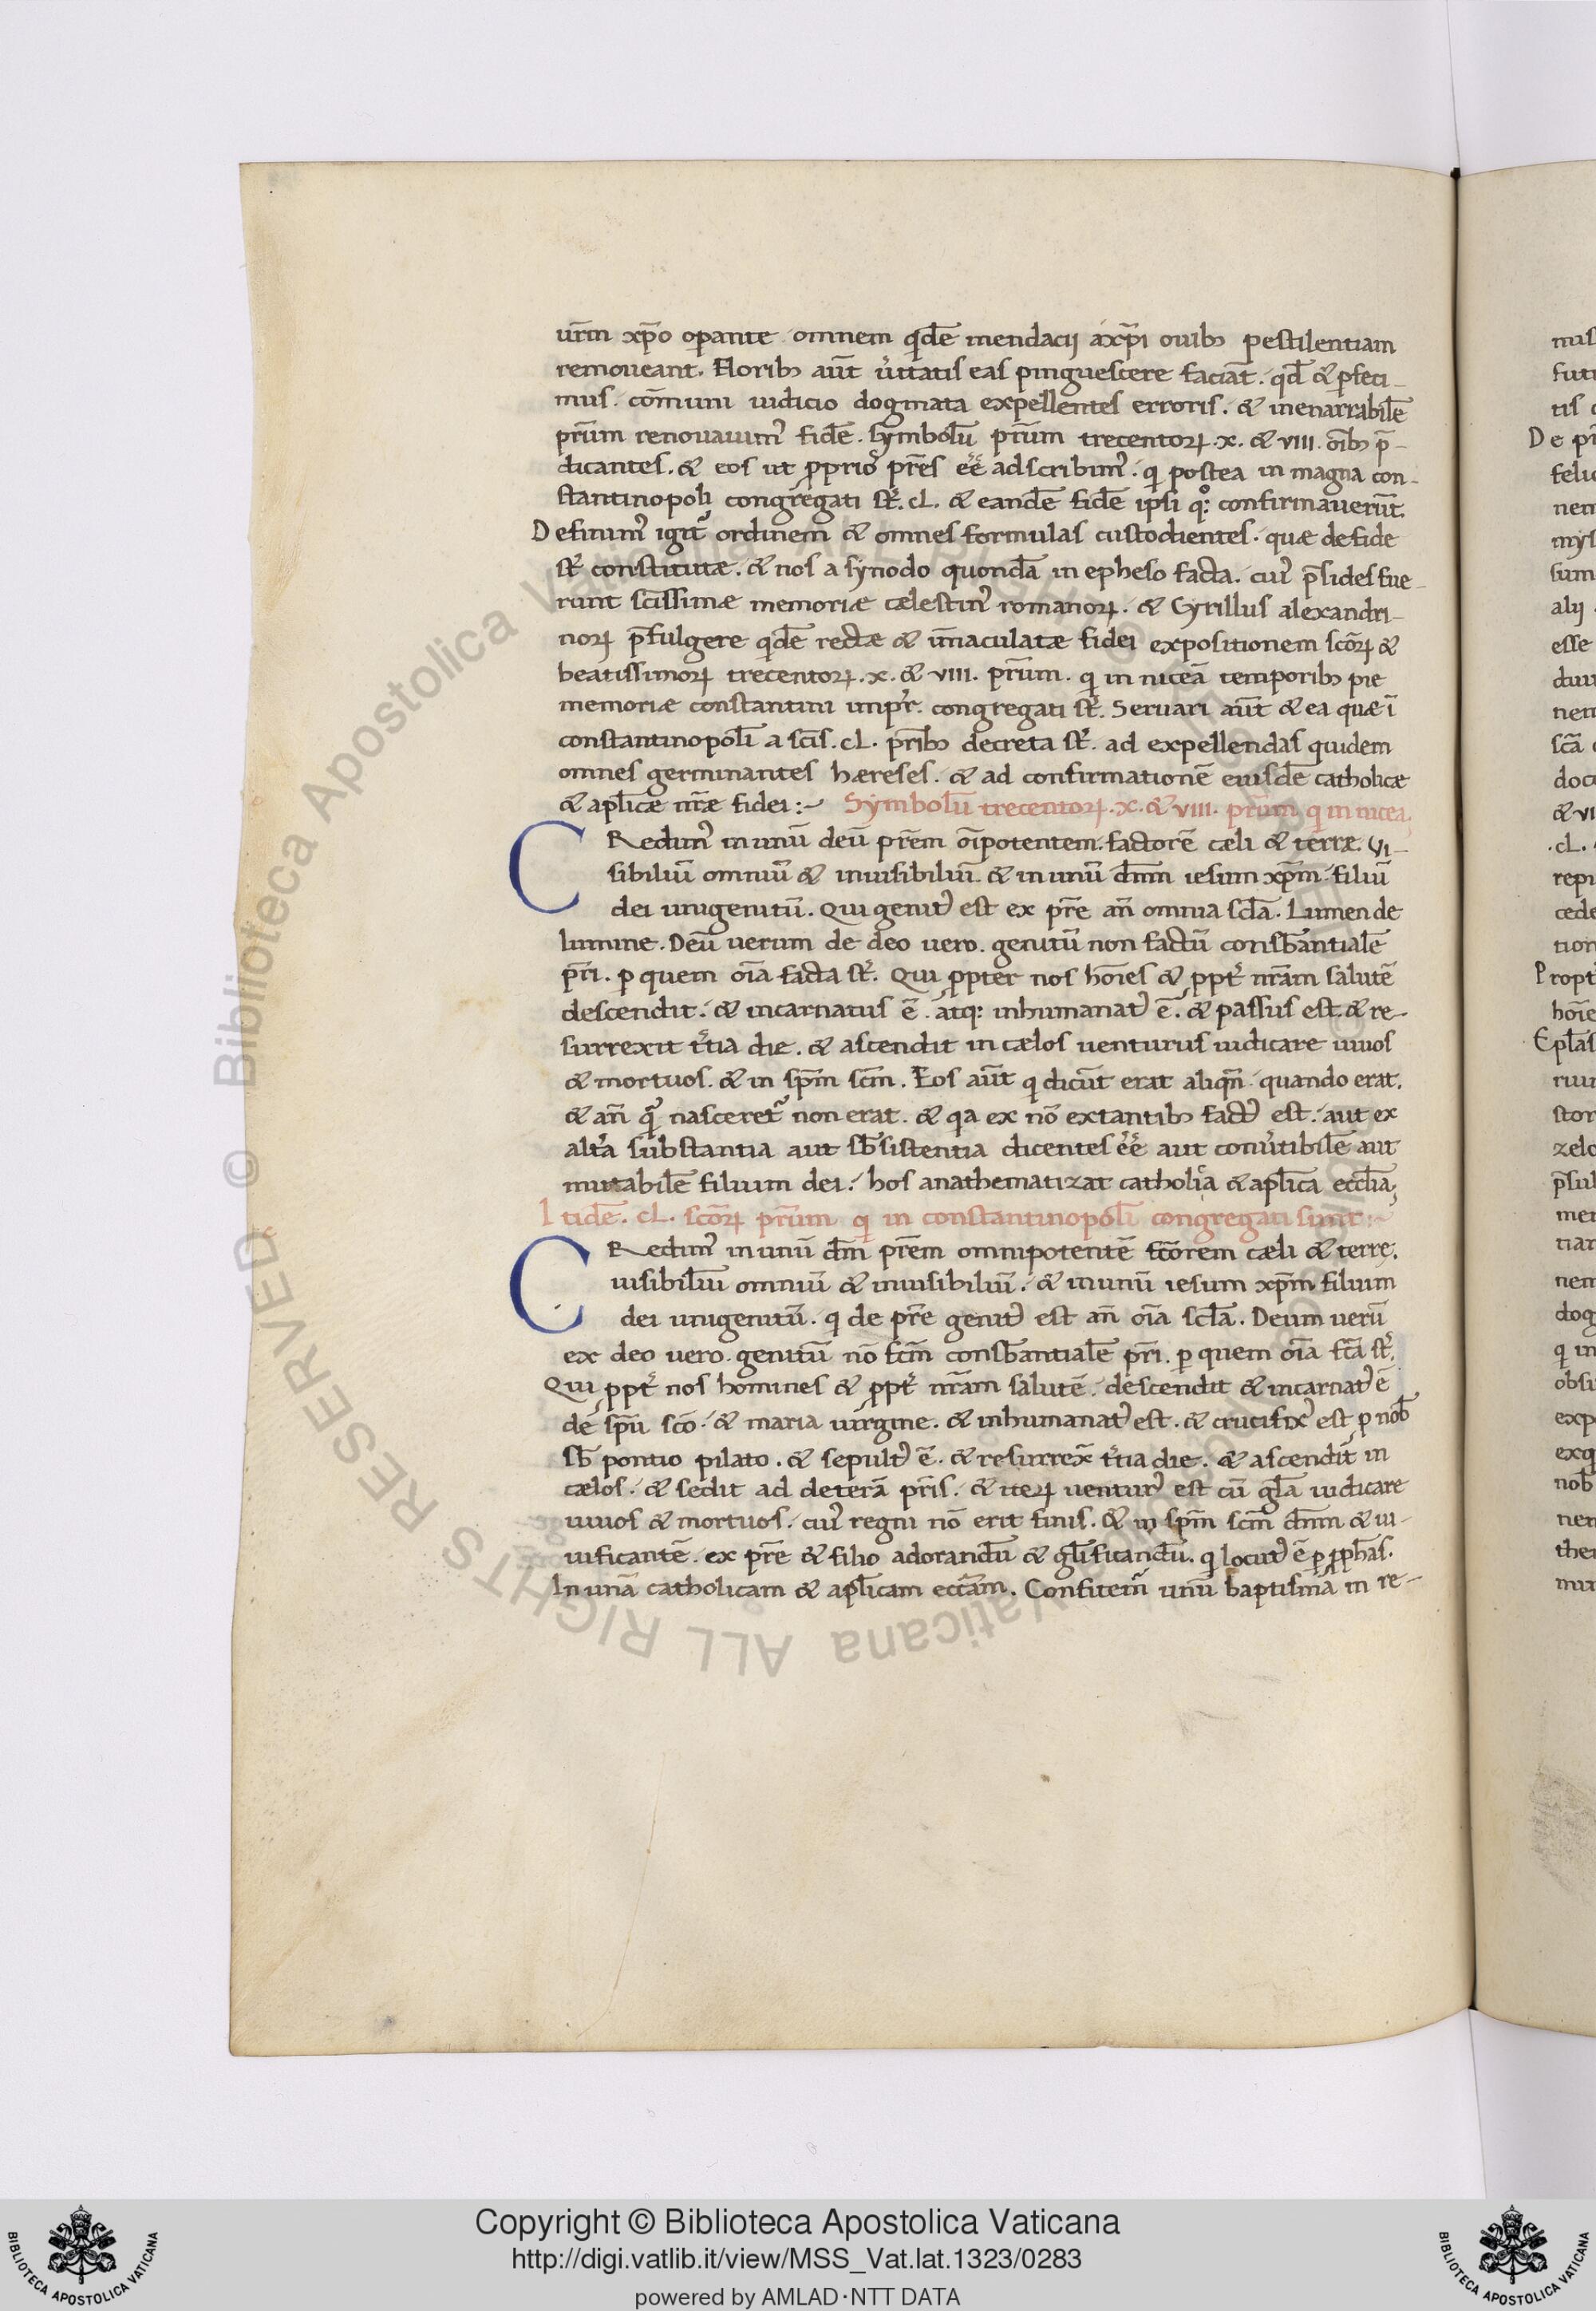 ur̄m xp̄o operante omnem qdē mendacij axp̄i ouibꝫ pestilentiam
remoueant. Floribꝫ aūt ueritatis eas pinguescere faciāt. qd̄ & pfeci-
mus. cōmuni iudicio dogmata expellentes erroris. & inenarrabilē
pr̄um renouauimꝰ fidē. Symbolū pr̄um trecentoꝝ .x. & VIII. oībꝫ p̄-
dicantes. & eos ut proprios pr̄es eē adscribimꝰ. qi postea in magna con-
stantinopoli congregati st̄. cL. & eandē fidē ipsi qoꝫ confirmauerūt.
Definimꝰ igit ordinem & omnes formulas custodientes. quæ de fide
st̄ constitutæ. & nos a synodo quondā in epheso facta. cuiꝰ p̄sides fue-
runt scīssimæ memoriæ cælestinꝰ romanoꝝ. & Cyrillus alexandri-
noꝝ p̄fulgere qdē rectæ & īmaculatæ fidei expositionem scōꝝ &
beatissimoꝝ trecentoꝝ .x. & VIII. pr̄um. qi in niceā temporibꝫ pie
memoriæ constantini impr̄. congregati st̄. Seruari aūt & ea quæ ī
constantinopoli a scīs .cL. pr̄ibꝫ decreta st̄. ad expellendas quidem
omnes germinantes hæreses. & ad confirmationē eiusdē catholicæ
& aplicæ nr̄æ fidei:~ Symbolū trecentoꝝ .x. & VIII. pr̄um qi in nicea,
CRedimꝰ in unū deū pr̄em oīpotentem. factorē cæli & terræ. Vi-
sibiliū omniū & inuisibiliū. & in unū dn̄m iesum xp̄m. filiū
dei unigenitū. Qui genitꝰ est ex pr̄e an̄ omnia scl̄a. Lumen de
lumine. Deū uerum de deo uero. genitū non factū consb̄antialē
pr̄i. p quem oīa facta st̄. Qui propter nos hoīes & ppt nr̄am salutē
descendit. & incarnatus ē. atqꝫ inhumanatꝰ ē. & passus est. & re-
surrexit tertia die. & ascendit in cælos uenturus iudicare uiuos
& mortuos. & in sp̄m scm̄. Eos aūt qi dicūt erat aliqn̄. quando erat.
& an̄ q nasceret non erat. & qa ex nō extantibꝫ factꝰ est. aut ex
altera substantia aut sb̄sistentia dicentes eē aut conuertibilē aut
mutabilē filium dei. hos anathematizat catholica & aplica eccl̄ia,
Itidē .cL. scōꝝ pr̄um qi in constantinopoli congregati sunt:~
CRedimꝰ in unū dm̄ pr̄em omnipotentē fc̄orem cæli & terre.
uisibiliū omniū & inuisibiliū. & in unū iesum xp̄m filium
dei unigenitū. qi de pr̄e genitꝰ est an̄ oīa scl̄a. Deum uerū
ex deo uero. genitū nō fcm̄ consb̄antialē pr̄i. p quem oīa fc̄a st̄.
Qui ppt nos homines & ppt nr̄am salutē. descendit & incarnatꝰ ē
de sp̄u scō. & maria uirgine. & inhumanatꝰ est. & crucifixꝰ est p nob̄
sb̄ pontio pilato. & sepultꝰ ē. & resurrex̄ tertia die. & ascendit in
cælos. & sedit ad deterā pr̄is. & iteꝝ uenturꝰ est cū gl̄a iudicare
uiuos & mortuos. cuiꝰ regni nō erit finis. & in sp̄m scm̄ dn̄m & ui-
uificantē. ex pr̄e & filio adorandū & gl̄ificandū. qi locutꝰ ē p pph̄as.
In unā catholicam & aplicam ecc̄am. Confitemꝰ unū baptismā in re-
Copyright © Biblioteca Apostolica Vaticana
http://digi.vatlib.it/view/MSS_Vat.lat.1323/0283
powered by AMLAD·NTT DATA